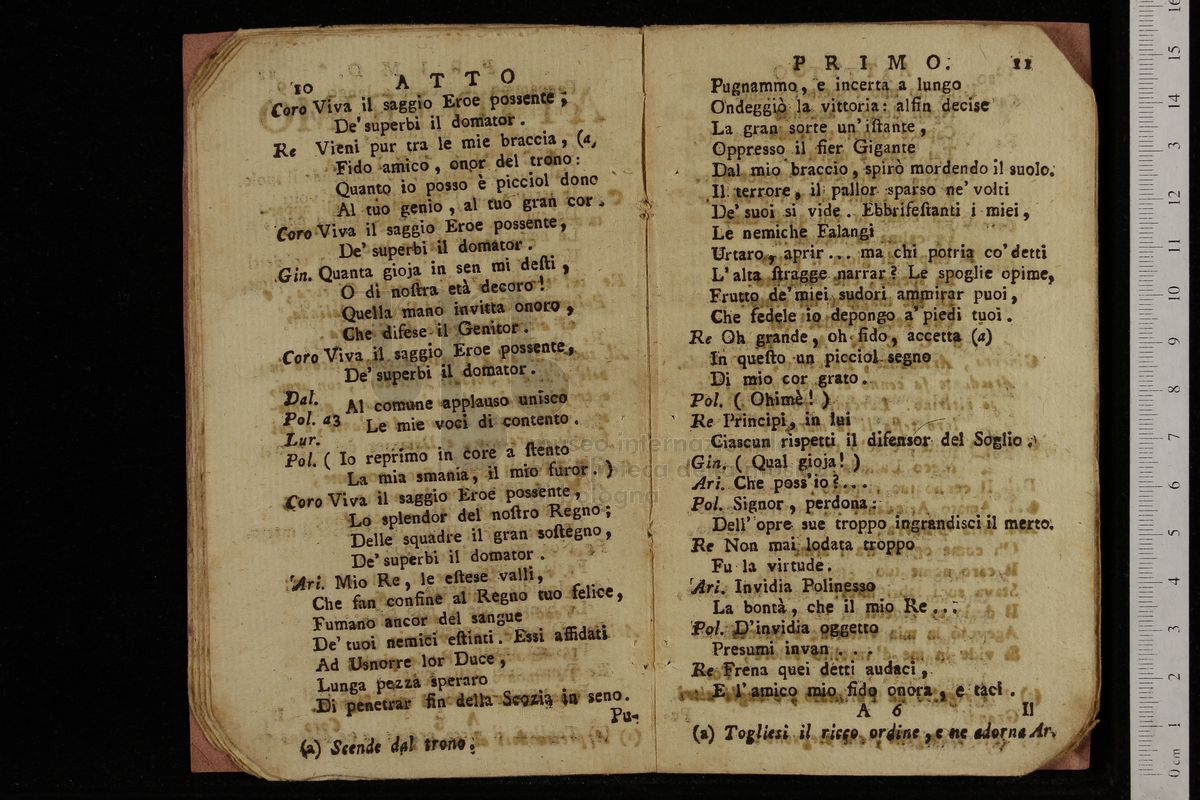 10 ATTO
Coro Viva il saggio Eroe possente;
De' superbi il domator.
Re Vieni pur tra le mie braccia, (a,
Fido amico, onor del trono:
Quanto io posso è picciol dono
Al tuo genio, al tuo gran cor.
Coro Viva il saggio Eroe possente,
De' superbi il domator.
Gin. Quanta gioja in sen mi desti,
O di nostra età decoro!
Quella mano invitta onoro,
Che difese il Genitor.
Coro Viva il saggio Eroe possente,
De' superbi il domator.
Dal.
Pol. a3 Al comune applauso unisco
Lur. Le mie voci di contento.
Pol. ( Io reprimo in core a stento
La mia smania, il mio furor. )
Coro Viva il saggio Eroe possente,
Lo splendor del nostro Regno;
Delle squadre il gran sostegno,
De' superbi il domator.
Ari. Mio Re, le estese valli,
Che fan confine al Regno tuo felice,
Fumano ancor del sangue
De' tuoi nemici estinti. Essi affidati
Ad Usnorre lor Duce,
Lunga pezza speraro
Di penetrar fin della Scozia in seno.
Pu-
(a) Scende dal trono.
PRIMO. 11
Pugnammo, e incerta a lungo
Ondeggiò la vittoria: alfin decise
La gran sorte un' istante,
Oppresso il fier Gigante
Dal mio braccio, spirò mordendo il suolo.
Il terrore, il pallor sparso ne' volti
De' suoi si vide. Ebbrifestanti i miei,
Le nemiche Falangi
Urtaro, aprir... ma chi potria co' detti
L' alta stragge narrar? Le spoglie opime,
Frutto de' miei sudori ammirar puoi,
Che fedele io depongo a' piedi tuoi.
Re Oh grande, oh fido, accetta (a)
In questo un picciol segno
Di mio cor grato.
Pol. ( Ohimè! )
Re Principi, in lui
Ciascun rispetti il difensor del Soglio.
Gin. ( Qual gioja! )
Ari. Che poss' io?...
Pol. Signor, perdona:
Dell' opre sue troppo ingrandisci il merto.
Re Non mai lodata troppo
Fu la virtude.
Ari. Invidia Polinesso
La bontà, che il mio Re...
Pol. D'invidia oggetto
Presumi invan...
Re Frena quei detti audaci,
E l' amico mio fido onora, e taci.
A 6 Il
(a) Togliesi il ricco ordine, e ne adorna Ar.
museo internaz
bologna